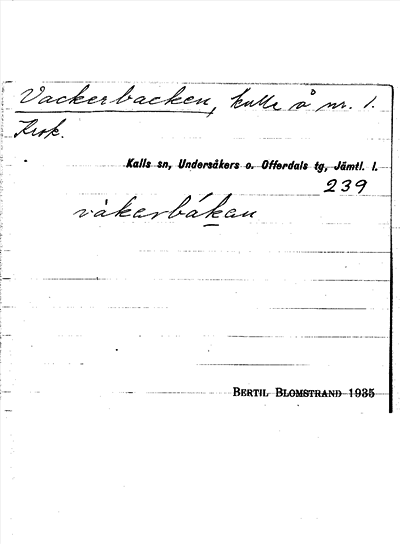 Vackerbacken, kulle å nr. 1.
Krok.
Kalls sn, Undersåkers o. Offerdals tg, Jämtl. l.
239
vàkarbákan
BERTIL BLOMSTRAND 1935